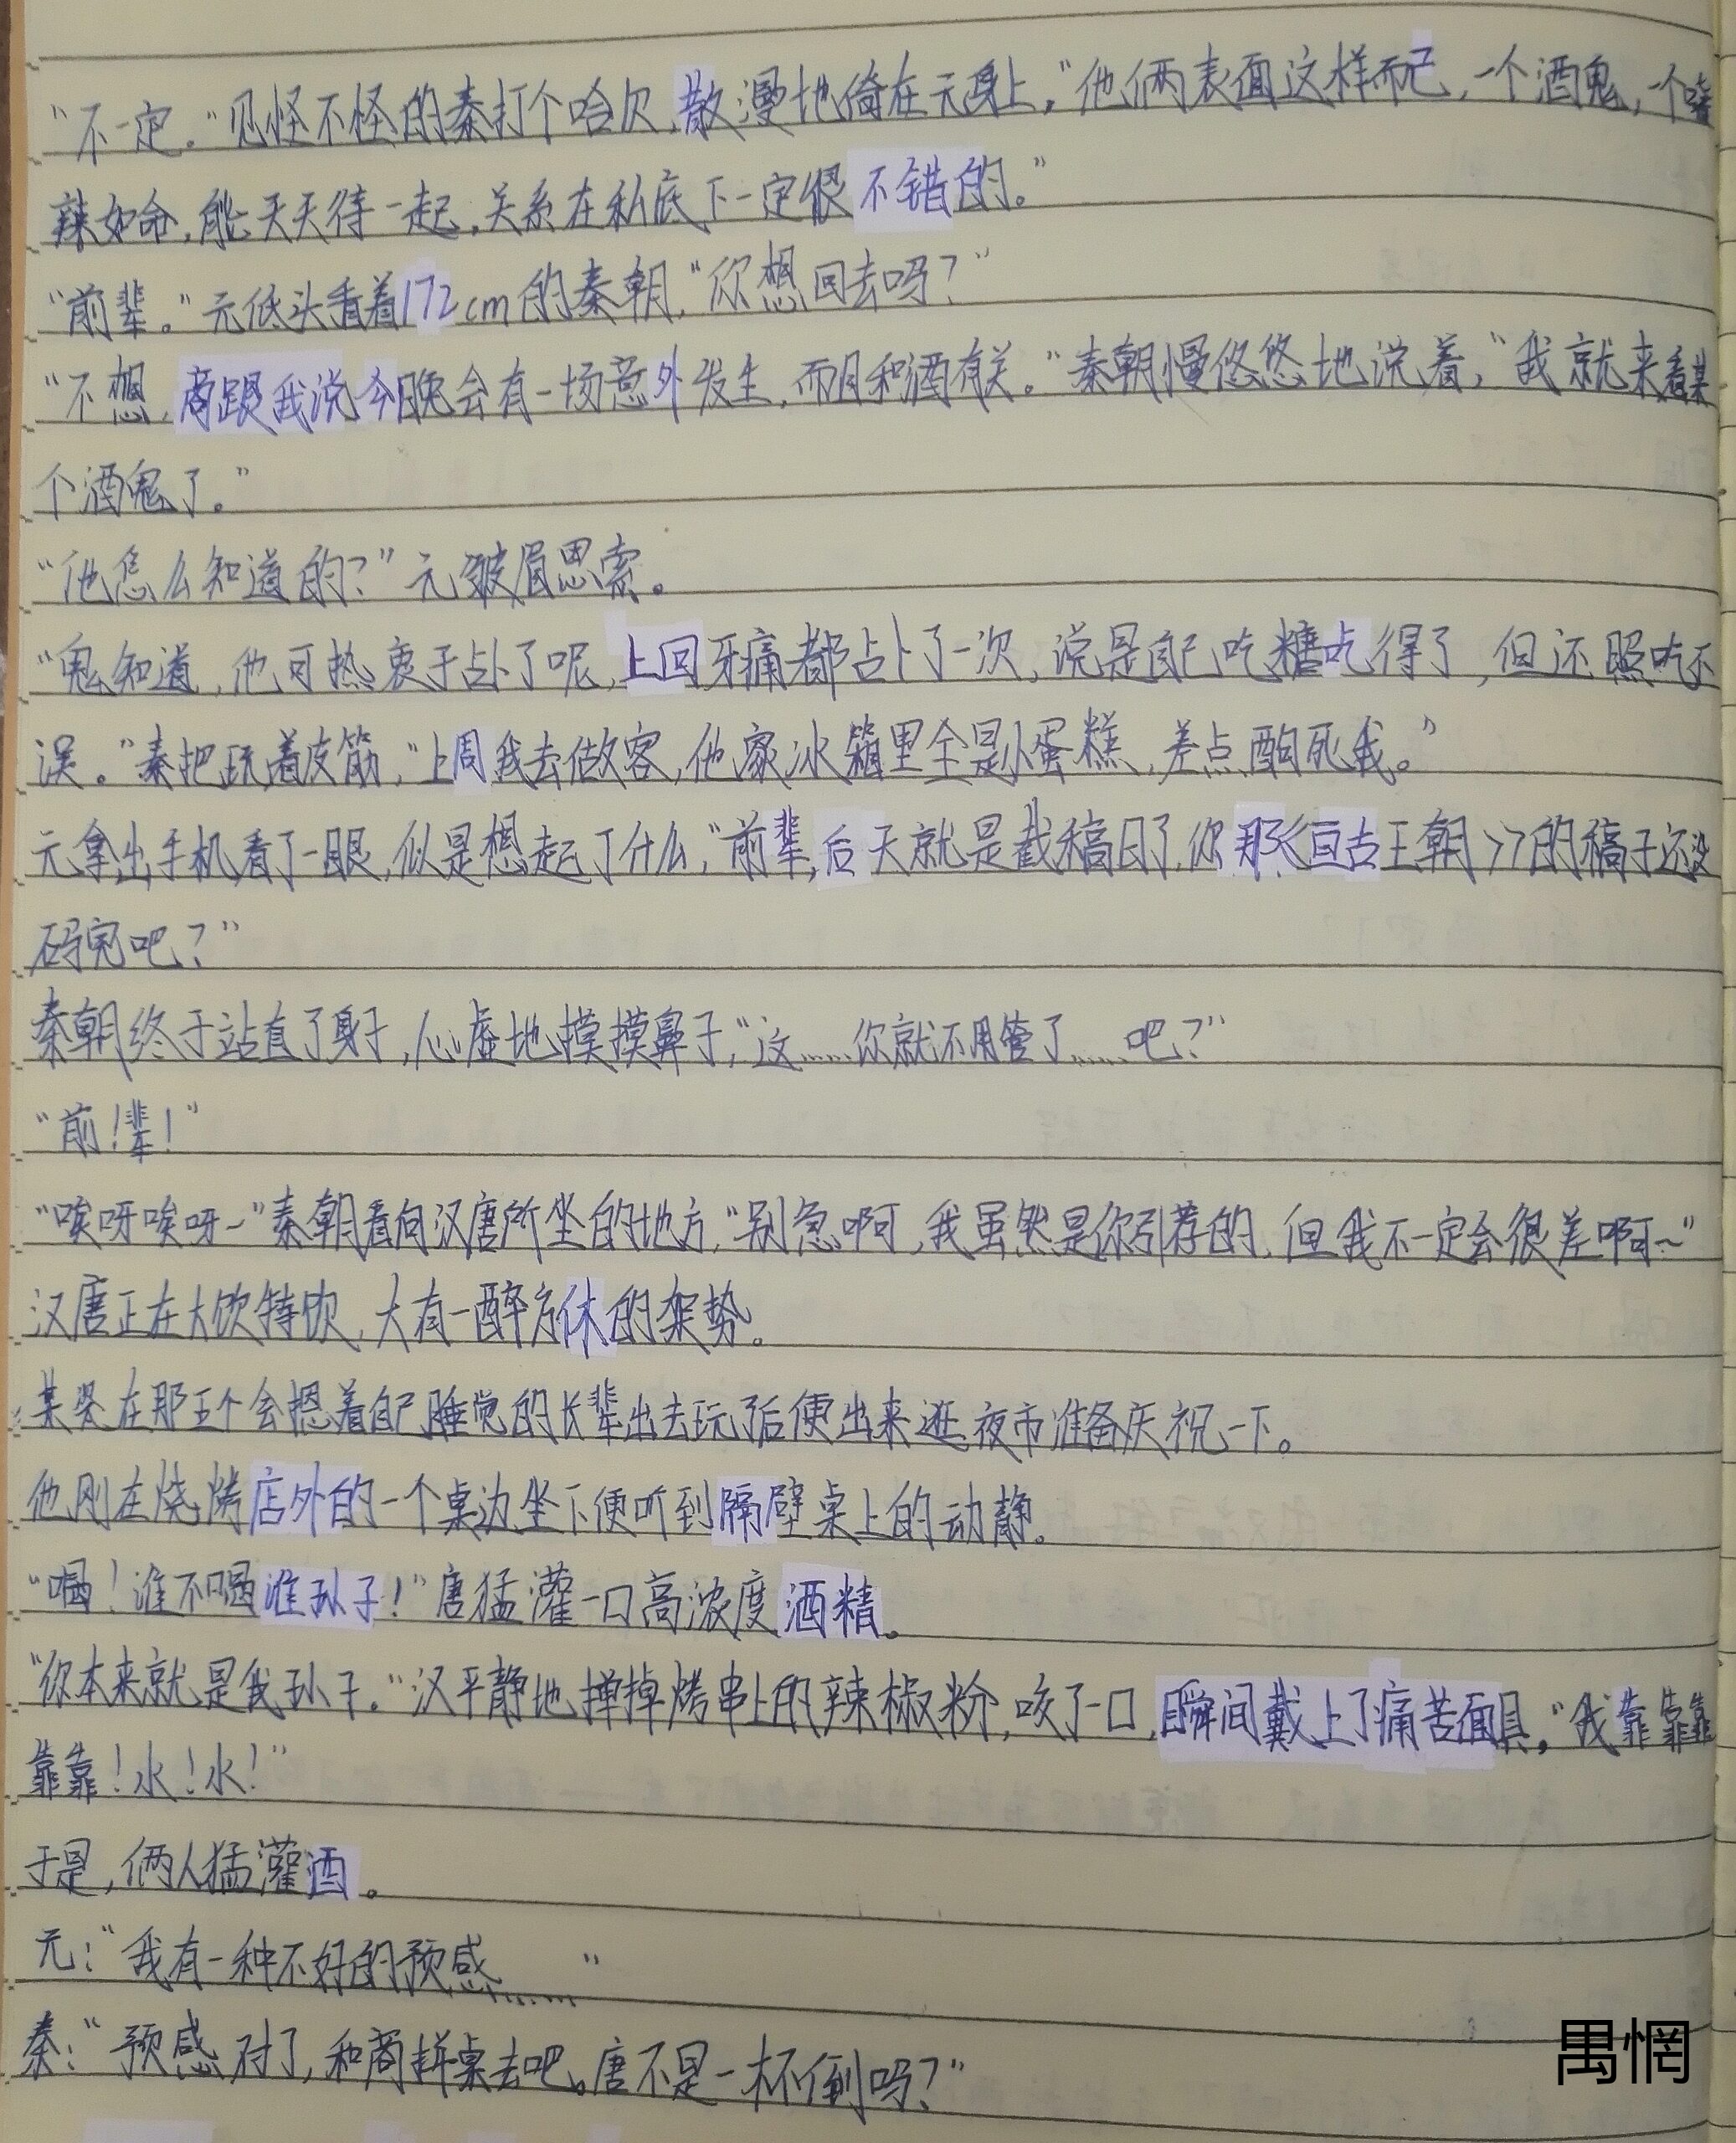 “不一定。”见怪不怪的秦打个哈欠,散漫地倚在元身上,“他俩表面这样而已,一个酒鬼,一个嗜
辣如命,能天天待一起,关系在私底下一定很不错的。”
“前辈。”元低头看着172cm的秦朝,“你想回去吗?”
“不想,商跟我说今晚会有一场意外发生,而且和酒有关。”秦朝慢悠悠地说着,“我就来看某
个酒鬼了。”
“他怎么知道的?”元皱眉思索。
“鬼知道,他可热衷于占卜了呢,上回牙痛都占卜了一次,说是自己吃糖吃得了,但还照吃不
误。”秦把玩着皮筋,“上周我去做客,他家冰箱里全是小蛋糕,差点齁死我。”
元拿出手机看了一眼,似是想起了什么,“前辈,后天就是截稿日了,你那《亘古王朝》的稿子还没
码完吧?”
秦朝终于站直了身子,心虚地摸摸鼻子,“这……你就不用管了……吧?”
“前!辈!”
“唉呀唉呀~”秦朝看向汉唐所坐的地方,“别急啊,我虽然是你引荐的,但我不一定会很差啊~”
汉唐正在大饮特饮,大有一醉方休的架势。
某癸在那五个会摁着自己睡觉的长辈出去玩了后便出来逛夜市准备庆祝一下。
他刚在烧烤店外的一个桌边坐下便听到隔壁桌上的动静。
“喝!谁不喝谁孙子!”唐猛灌一口高浓度酒精。
“你本来就是我孙子。”汉平静地掸掉烤串上的辣椒粉,咬了一口,瞬间戴上了痛苦面具,“我靠靠靠
靠靠!水!水!”
于是,俩人猛灌酒。
元:“我有一种不好的预感……”
秦:“预感对了,和商拼桌去吧。唐不是一杯倒吗?”
禺惘